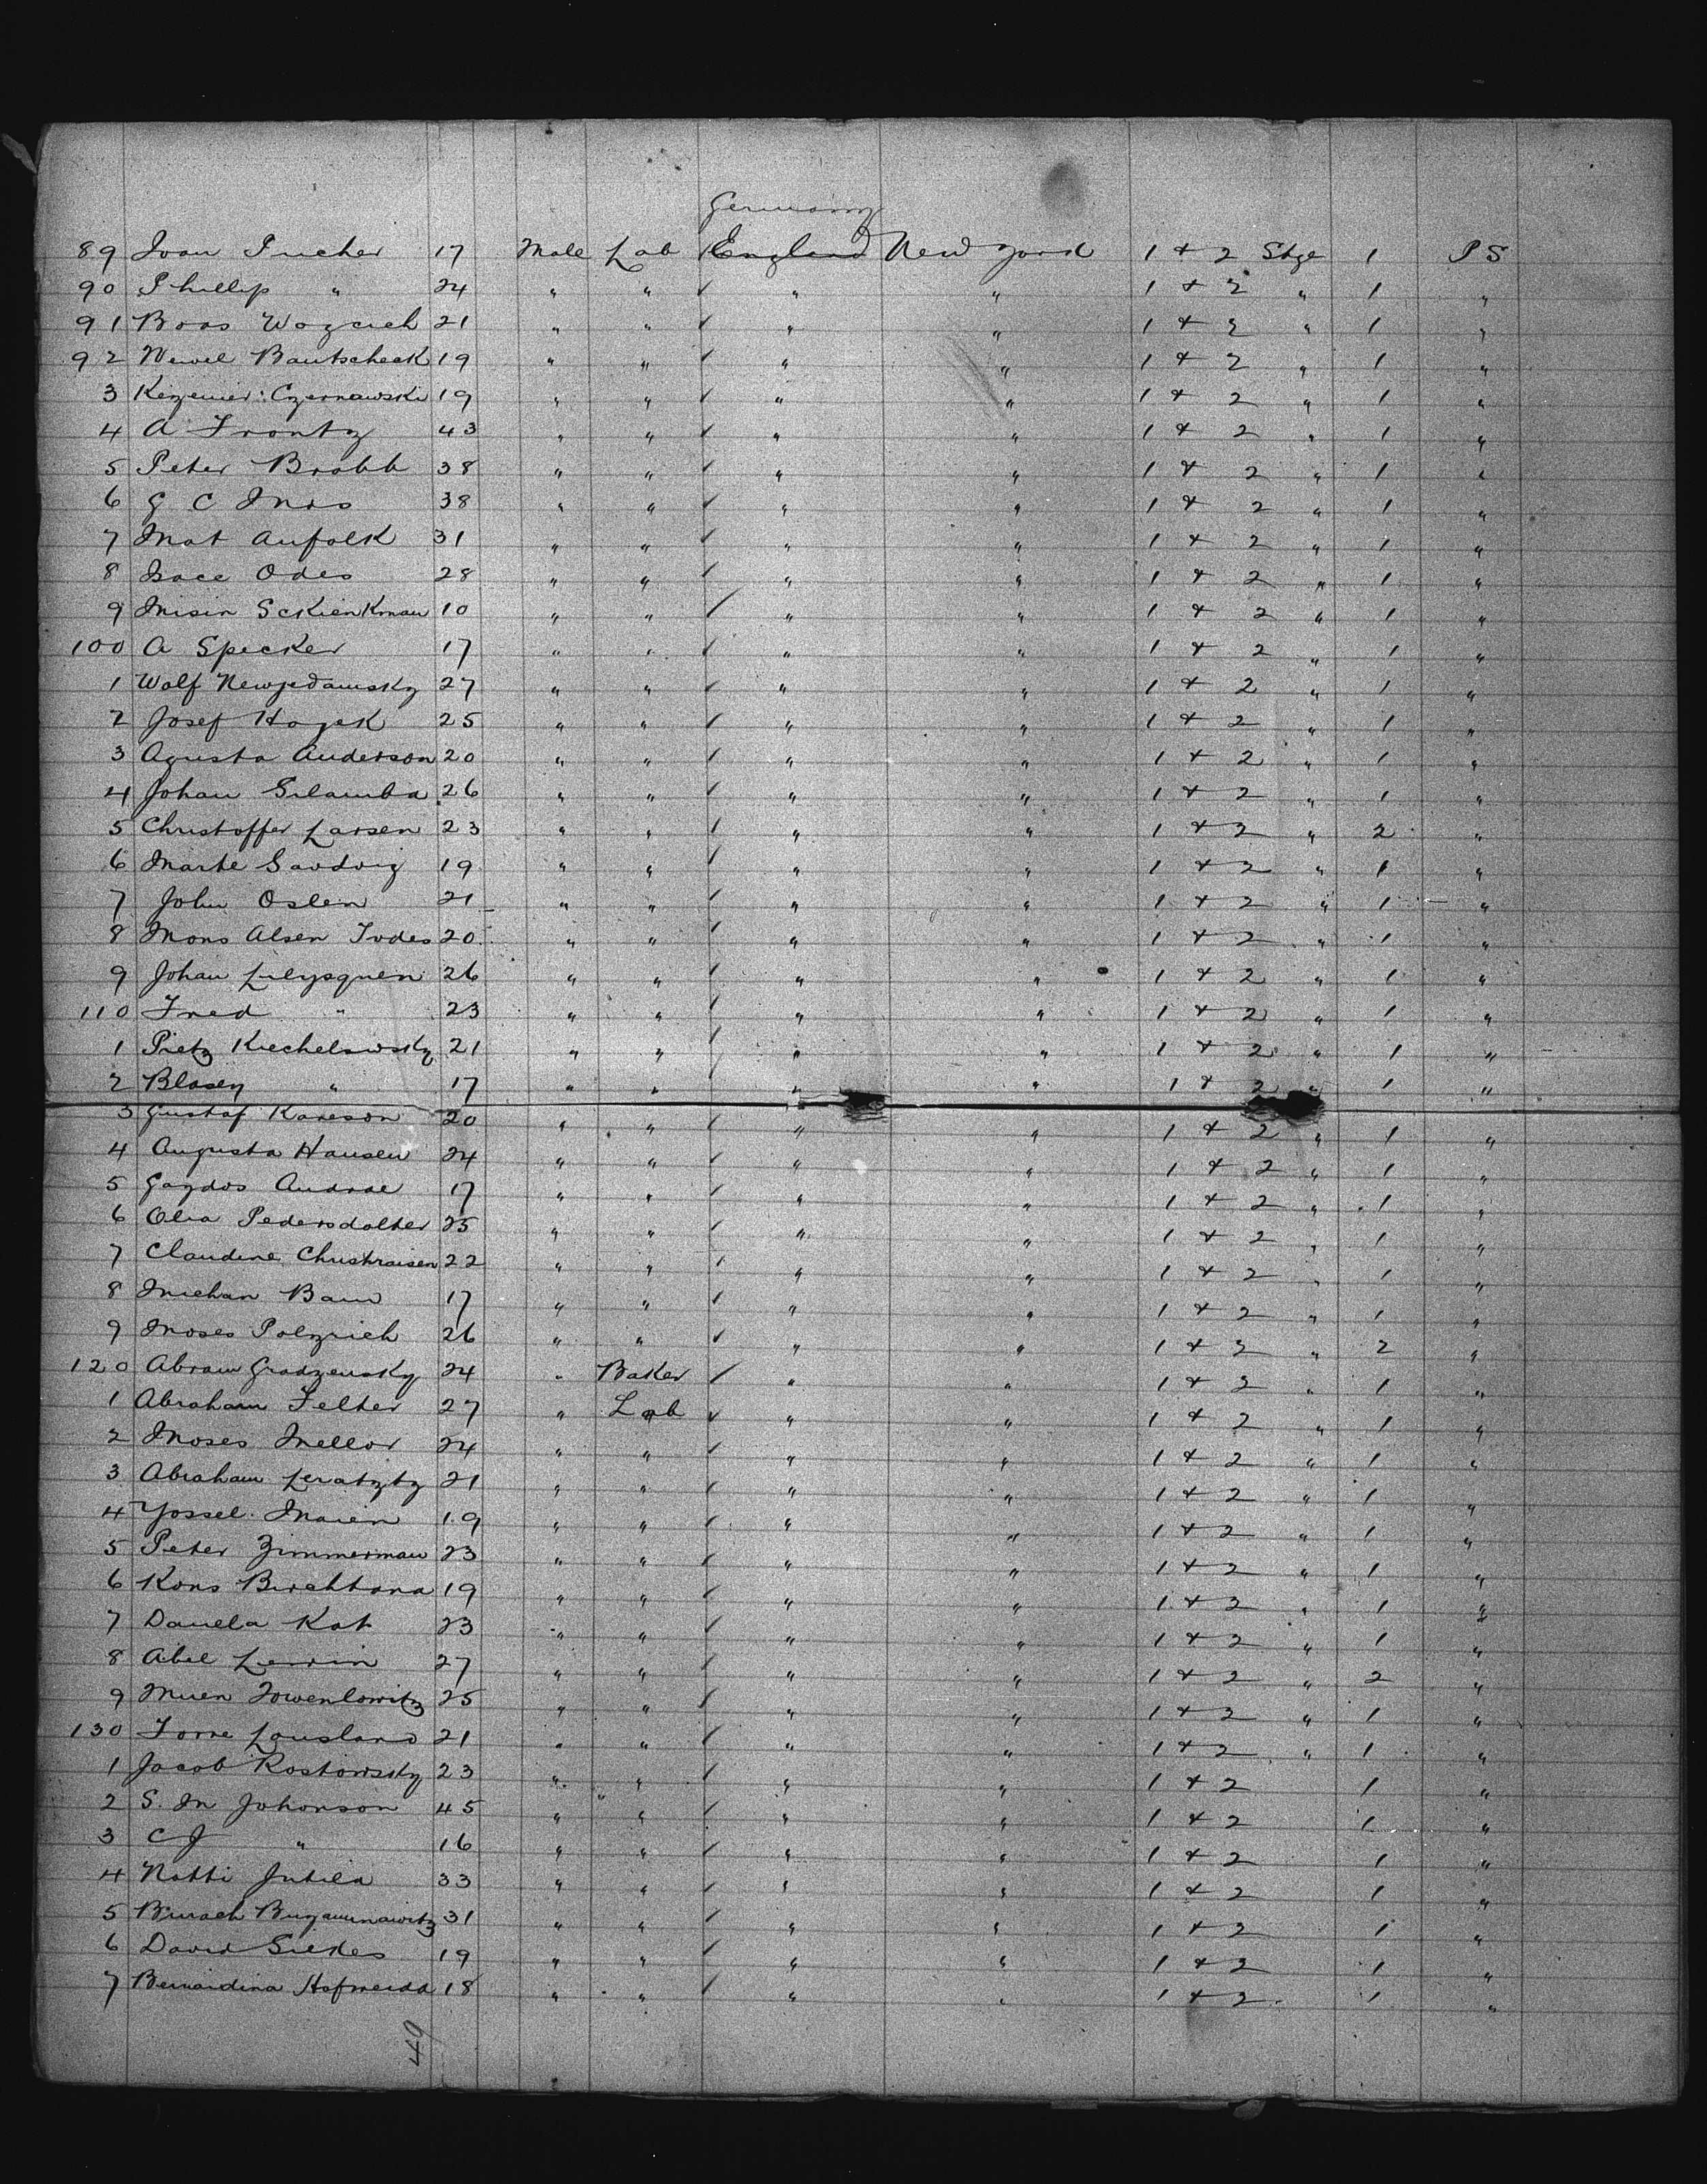 Germany
89 Ivan Pucher 17 Male Lab England New York 1 + 2 Stge 1 P S
90 Phillip " 24 " " " " 1 + 2 " 1 "
91 Boas Wozcieh 21 " " " " 1 + 2 " 1 "
92 Wewel Bautscheck 19 " " " " 1 + 2 " 1 "
3 Czernawski 19 " " " " 1 + 2 " 1 "
4 A Frontz 43 " " " " 1 + 2 " 1 "
5 Peter Brabb 38 " " " " 1 + 2 " 1 "
6 G C 38 " " " " 1 + 2 " 1 "
7 Mat Aufolk 31 " " " " 1 + 2 " 1 "
8 Isace Odes 28 " " " " 1 + 2 " 1 "
9 Misin Sckienkman 10 " " " " 1 + 2 " 1 "
100 A Specker 17 " " " " 1 + 2 " 1 "
1 Wolf Newjedamsky 27 " " " " 1 + 2 " 1 "
2 Josef Hozek 25 " " " " 1 + 2 " 1 "
3 Agusta Anderson 20 " " " " 1 + 2 " 1 "
4 Johan Silamba 26 " " " " 1 + 2 " 1 "
5 Christoffer Larsen 23 " " " " 1 + 2 " 2 "
6 Marte Sandvig 19 " " " " 1 + 2 " 1 "
7 John Oslen 21 " " " " 1 + 2 " 1 "
8 Mons Alsen 20 " " " " 1 + 2 " 1 "
9 Johan Lilysquen 26 " " " " 1 + 2 " 1 "
110 Fred " 23 " " " " 1 + 2 " 1 "
1 Pietz Kiechelswsky 21 " " " " 1 + 2 " 1 "
2 Blasey " 17 " " " " 1 + 2 " 1 "
3 Gustaf Kareson 20 " " " " 1 + 2 " 1 "
4 Augusta Hansen 24 " " " " 1 + 2 " 1 "
5 Gazdos Andrae 17 " " " " 1 + 2 " 1 "
6 Olia Pedersdalter 25 " " " " 1 + 2 " 1 "
7 Claudine Christraisen 22 " " " " 1 + 2 " 1 "
8 Michan Baw 17 " " " " 1 + 2 " 1 "
9 Moses Polzrich 26 " " " " 1 + 2 " 2 "
120 Abram Gradzensky 24 " Baker " " 1 + 2 " 1 "
1 Abraham Felter 27 " Lab " " 1 + 2 " 1 "
2 Moses Mellor 24 " " " " 1 + 2 " 1 "
3 Abraham Leratztz 21 " " " " 1 + 2 " 1 "
4 Yossel Maien 19 " " " " 1 + 2 " 1 "
5 Peter Zimmerman 23 " " " " 1 + 2 " 1 "
6 Kons Birchtana 19 " " " " 1 + 2 " 1 "
7 Danela Kat 23 " " " " 1 + 2 " 1 "
8 Abel Lewin 27 " " " " 1 + 2 " 2 "
9 Muen Iowenlowitz 25 " " " " 1 + 2 " 1 "
130 Torre Lousland 21 " " " " 1 + 2 " 1 "
1 Jacob Rostowsky 23 " " " " 1 + 2 1 "
2 S. M Johonson 45 " " " " 1 + 2 1 "
3 C J " 16 " " " " 1 + 2 1 "
4 Natti Jutila 33 " " " " 1 + 2 1 "
5 Burach Bugaminawitz 31 " " " " 1 + 2 1 "
6 David Silkes 19 " " " " 1 + 2 1 "
7 Bernardina Hofmeida 18 " " " " 1 + 2 1 "
49